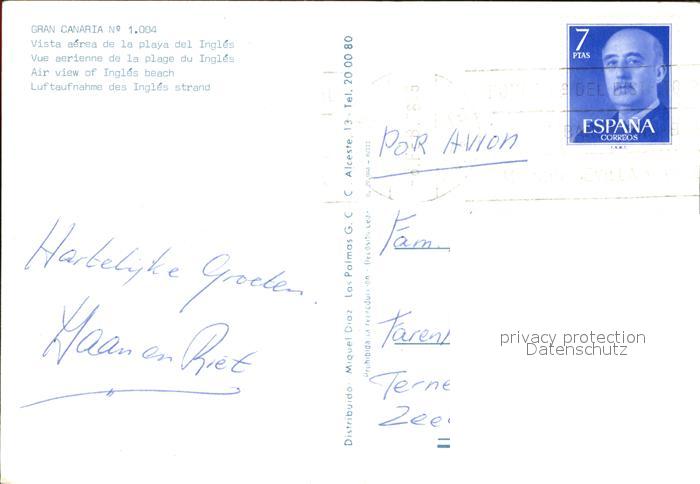 GRAN CANARIA Nº 1.004
Vista aérea de la playa del Inglés
Vue aerienne de la plage du Inglés
Air view of Inglés beach
Luftaufnahme des Inglés strand
Hartelijke Groeten.
Haan en Riet
Distribuido · Miguel Diaz Las Palmas G. C. C. Alceste, 13 - Tel. 20 00 80
Prohibida la reproducción
7
PTAS
ESPAÑA
CORREOS
POR AVION
Fam.
Terne
Zee
privacy protection
Datenschutz